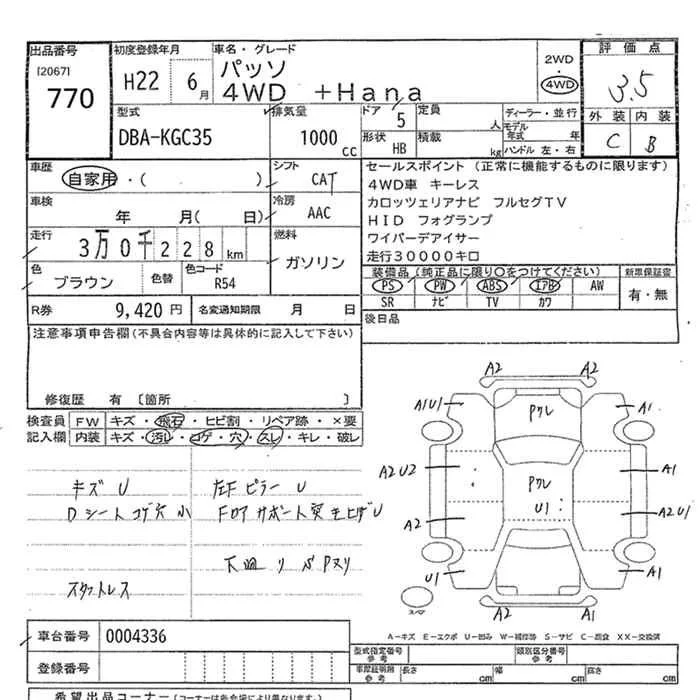 出品番号 初度登録年月 車名・グレード 2WD 評価点
[2067] H22 6月 パッソ 4WD
770 4WD +Hana 3.5
型式 排気量 ドア 5 定員 人 ディーラー・並行 外装 内装
DBA-KGC35 1000 CC 形状 HB 積載 kg モデル年式 年 C B
ハンドル 左・右
車歴 シフト セールスポイント (正常に機能するものに限ります)
自家用・( ) CAT 4WD車 キーレス
車検 冷房 カロッツェリアナビ フルセグTV
年 月( 日) AAC HID フォグランプ
走行 燃料 ワイパーデアイサー
3万0千228km ガソリン 走行30000キロ
色 色替 色コード 装備品(純正品に限り○をつけてください) 新車保証書
ブラウン R54 PS PW ABS エアB AW 有・無
R券 9,420円 名変通知期限 月 日 SR ナビ TV カワ
注意事項申告欄(不具合内容等は具体的に記入して下さい) 後日品
修復歴 有 [箇所 ]
検査員 FW キズ・飛石・ヒビ割・リペア跡・×要
記入欄 内装 キズ・汚レ・コゲ・穴・スレ・キレ・破レ
キズ U 左Fピラー U
Dシートコゲ穴小
スタットレス
A2 A2
A1U1 Pクレ A1
A2U2 Pクレ A1
U1
A2 A2U1
U1 A1
A2 A1
スペア
A-キズ E-エクボ U-凹み W-補修跡 S-サビ C-腐食 XX-交換済
車台番号 0004336 型式指定番号 参考 類別区分番号 参考
登録番号 車庫証明用 参考 長さ cm 幅 cm 高さ cm
希望出品コーナー